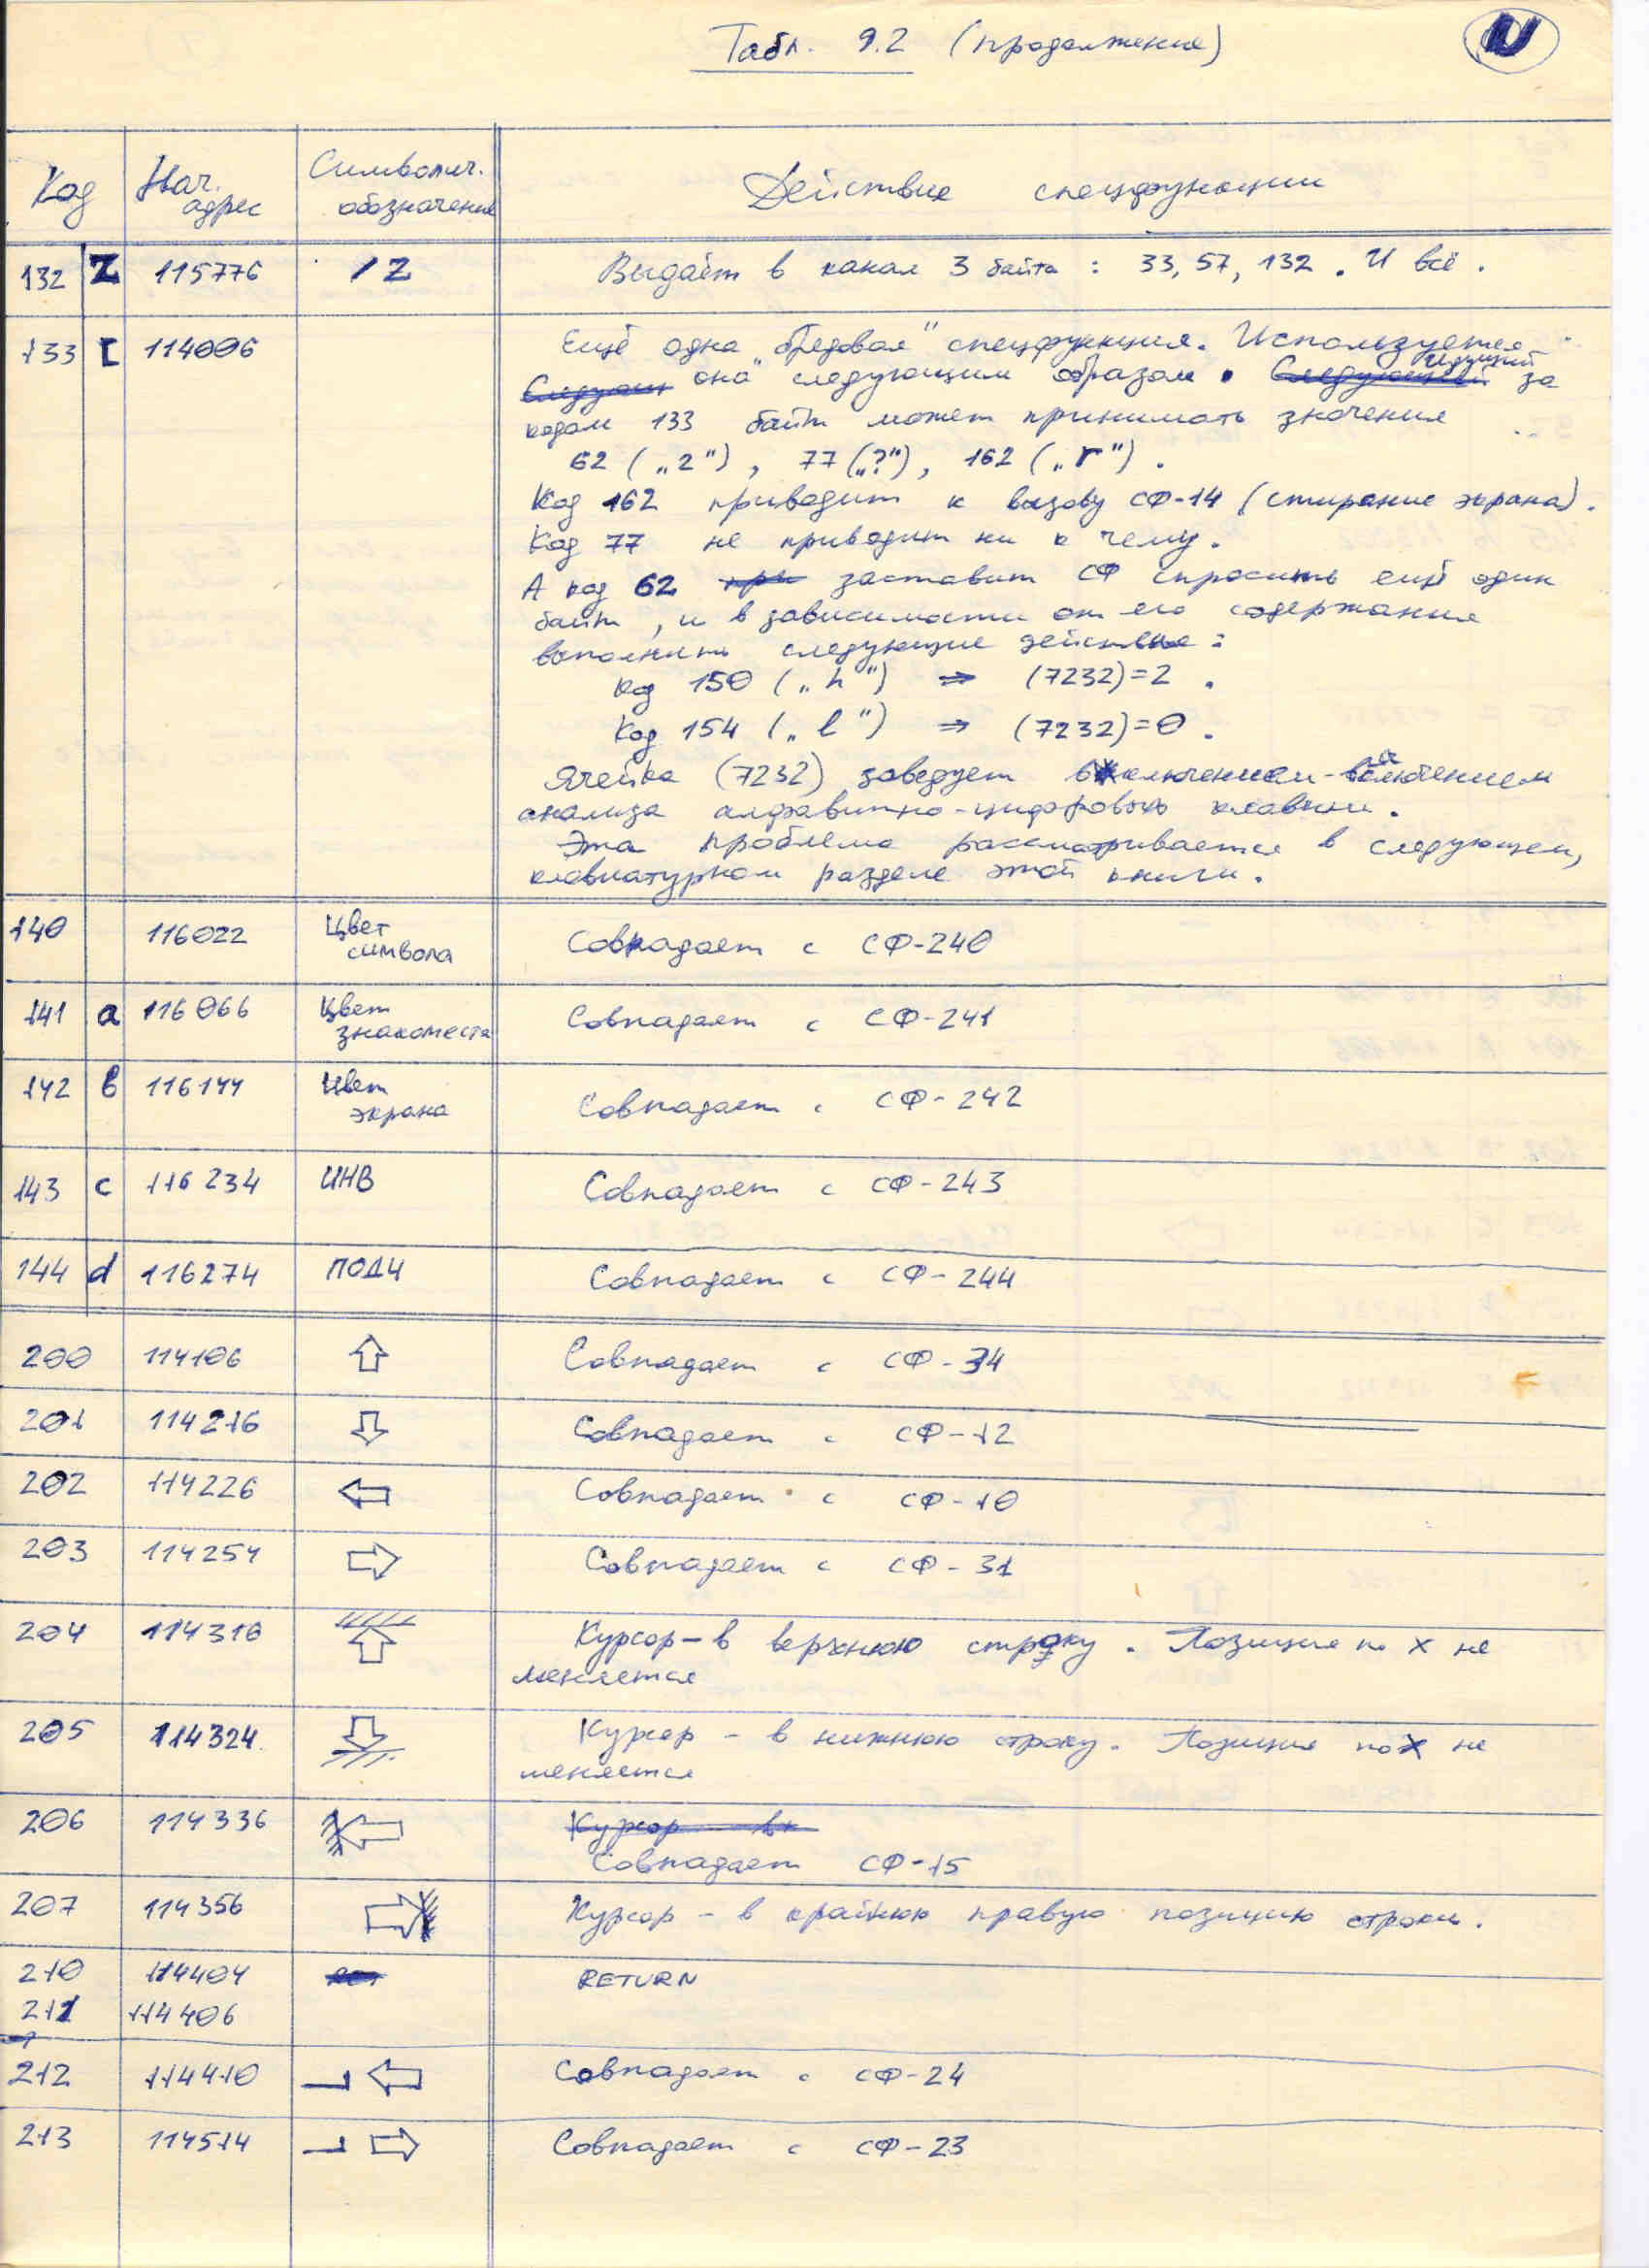 Табл. 9.2 (продолжение)
Код Нач. адрес Символич. обозначение Действие спецфункции
132 Z 115776 /Z Выдаёт в канал 3 байта : 33, 57, 132 . И всё .
133 [ 114006 Ещё одна „бредовая" спецфункция. Используется
она следующим образом . Идущий за
кодом 133 байт может принимать значения
62 („2") , 77 („?"), 162 („r") .
Код 162 приводит к вызову СФ-14 (стирание экрана) .
Код 77 не приводит ни к чему .
А код 62 заставит СФ спросить ещё один
байт , и в зависимости от его содержания
выполнить следующие действия :
код 150 („h") ⇒ (7232)=2 .
Код 154 („l") ⇒ (7232)=0 .
Ячейка (7232) заведует
анализа алфавитно-цифровых клавиш .
Эта проблема рассматривается в следующем,
клавиатурном разделе этой книги .
140 116022 Цвет символа Совпадает с СФ-240
141 a 116066 Цвет знакоместа Совпадает с СФ-241
142 b 116144 Цвет экрана Совпадает с СФ-242
143 c 116234 ИНВ Совпадает с СФ-243
144 d 116274 ПОДЧ Совпадает с СФ-244
200 114106 ⇧ Совпадает с СФ-34
201 114216 ⇩ Совпадает с СФ-12
202 114226 ⇦ Совпадает с СФ-10
203 114254 ⇨ Совпадает с СФ-31
204 114316 ⇧ Курсор – в верхнюю строку . Позиция по X не
меняется
205 114324 ⇩ Курсор – в нижнюю строку . Позиция по X не
меняется
206 114336 ⇦ Курсор – в
Совпадает СФ-15
207 114356 ⇨ Курсор – в крайнюю правую позицию строки .
210 114404 RETURN
211 114406
212 114410 ⇦ Совпадает с СФ-24
213 114514 ⇨ Совпадает с СФ-23